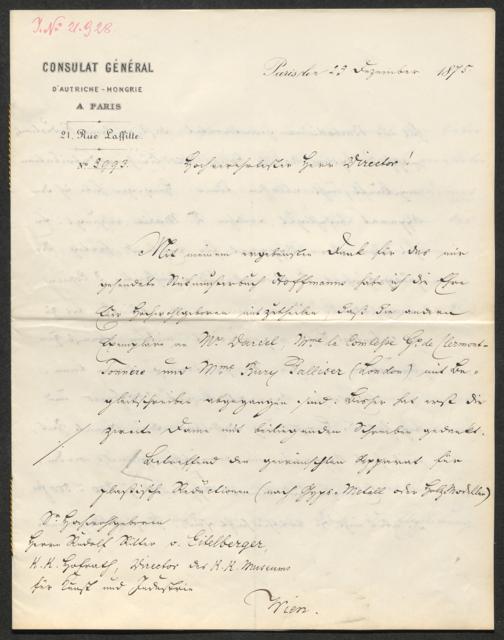 J. No 21.928
CONSULAT GÉNÉRAL
D'AUTRICHE-HONGRIE
A PARIS
21, Rue Laffitte.
No 2993.
Paris den 23 Dezember 1875
Hochverehrtester Herr Director!
Mit meinem ergebensten Dank für das mir
gesendete Stickmusterbuch Hoffmanns habe ich die Ehre
Euer Hochwohlgeboren mitzutheilen, daß die andern
Exemplare an Mr. Darcel, Mme la Comtesse Gd. de Clermont-
Tonnère und Mme Bury Palliser (London) mit Be-
gleitschreiben abgegangen sind. Bisher hat erst die
zweite Dame mit beiliegendem Schreiben gedankt.
Betreffend den gewünschten Apparat für
plastische Reductionen (nach Gyps-Metall oder Holz Modellen)
Sr Hochwohlgeboren
Herrn Rudolf Ritter v. Eitelberger,
K. K. Hofrath, Director des K. K. Museums
für Kunst und Industrie
Wien.